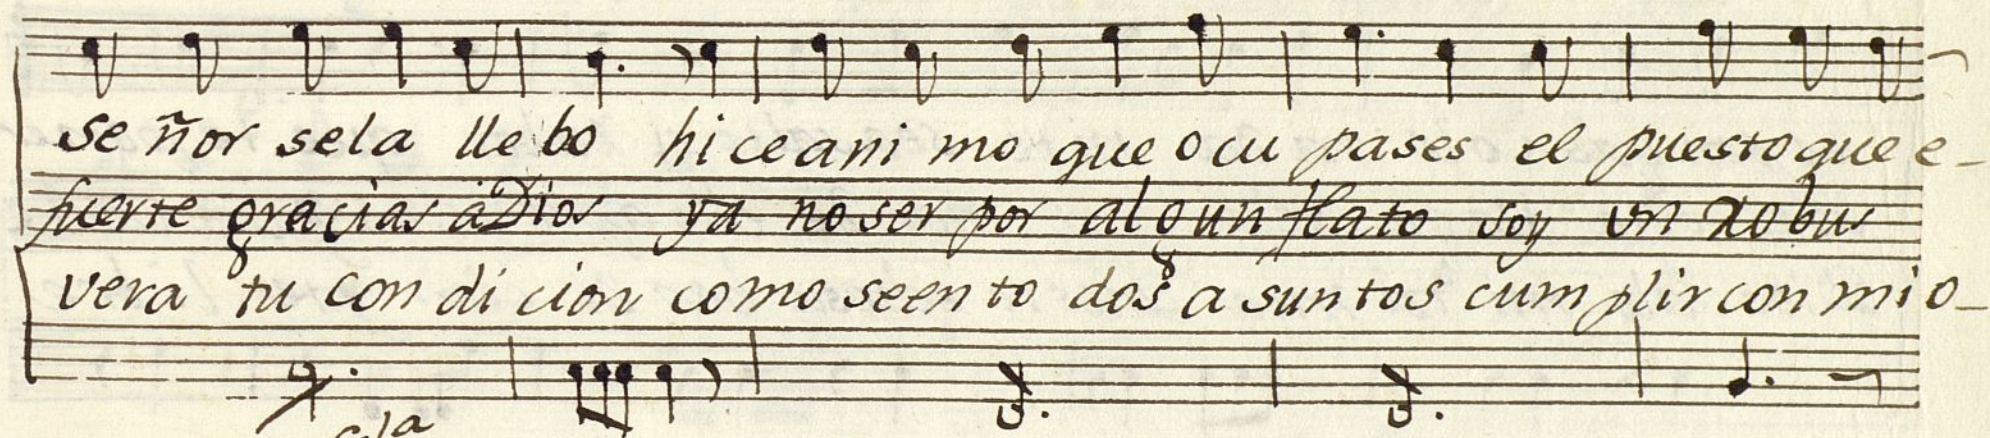 se ñor sela lle bo hi ceani mo que ocu pases el puestoque e-
fuerte gracias a Dios ya no ser por algun flato soy un robus
vera tu con di cion como seen to dos a suntos cum plir con mi o-